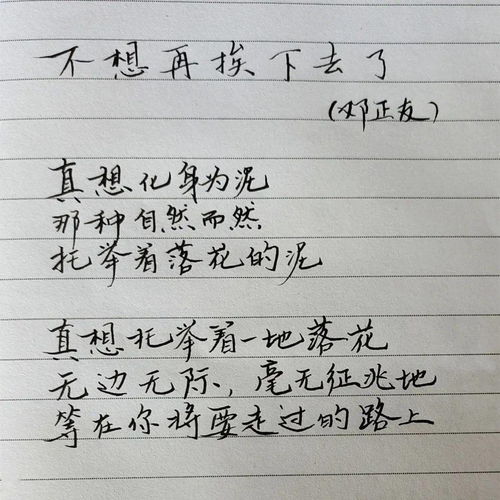 不想再挨下去了
(邓正友)
真想化身为泥
那种自然而然
托举着落花的泥
真想托举着一地落花
无边无际，毫无征兆地
等在你将要走过的路上